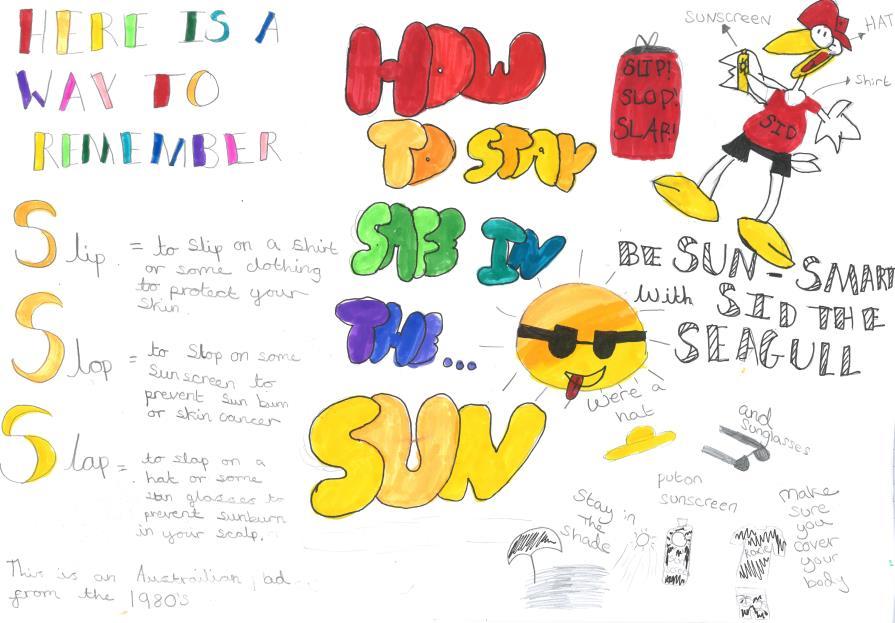 HERE IS A
WAY TO
REMEMBER
Slip = to slip on a shirt
or some clothing
to protect your
skin.
Slop = to Slop on some
Sunscreen to
prevent sun burn
or skin cancer
Slap = to slap on a
hat or some
sun glasses to
prevent sunburn
in your scalp.
This is an Austrailian ad
from the 1980's
HOW
TO STAY
SAFE IN
THE...
SUN
SLIP!
SLOP!
SLAP!
SUNSCREEN
HAT
Shirt
SID
BE SUN-SMART
with SID THE
SEAGULL
We're a
hat
and
sunglasses
Stay in
the
shade
put on
sunscreen
make
sure
you
cover
your
body